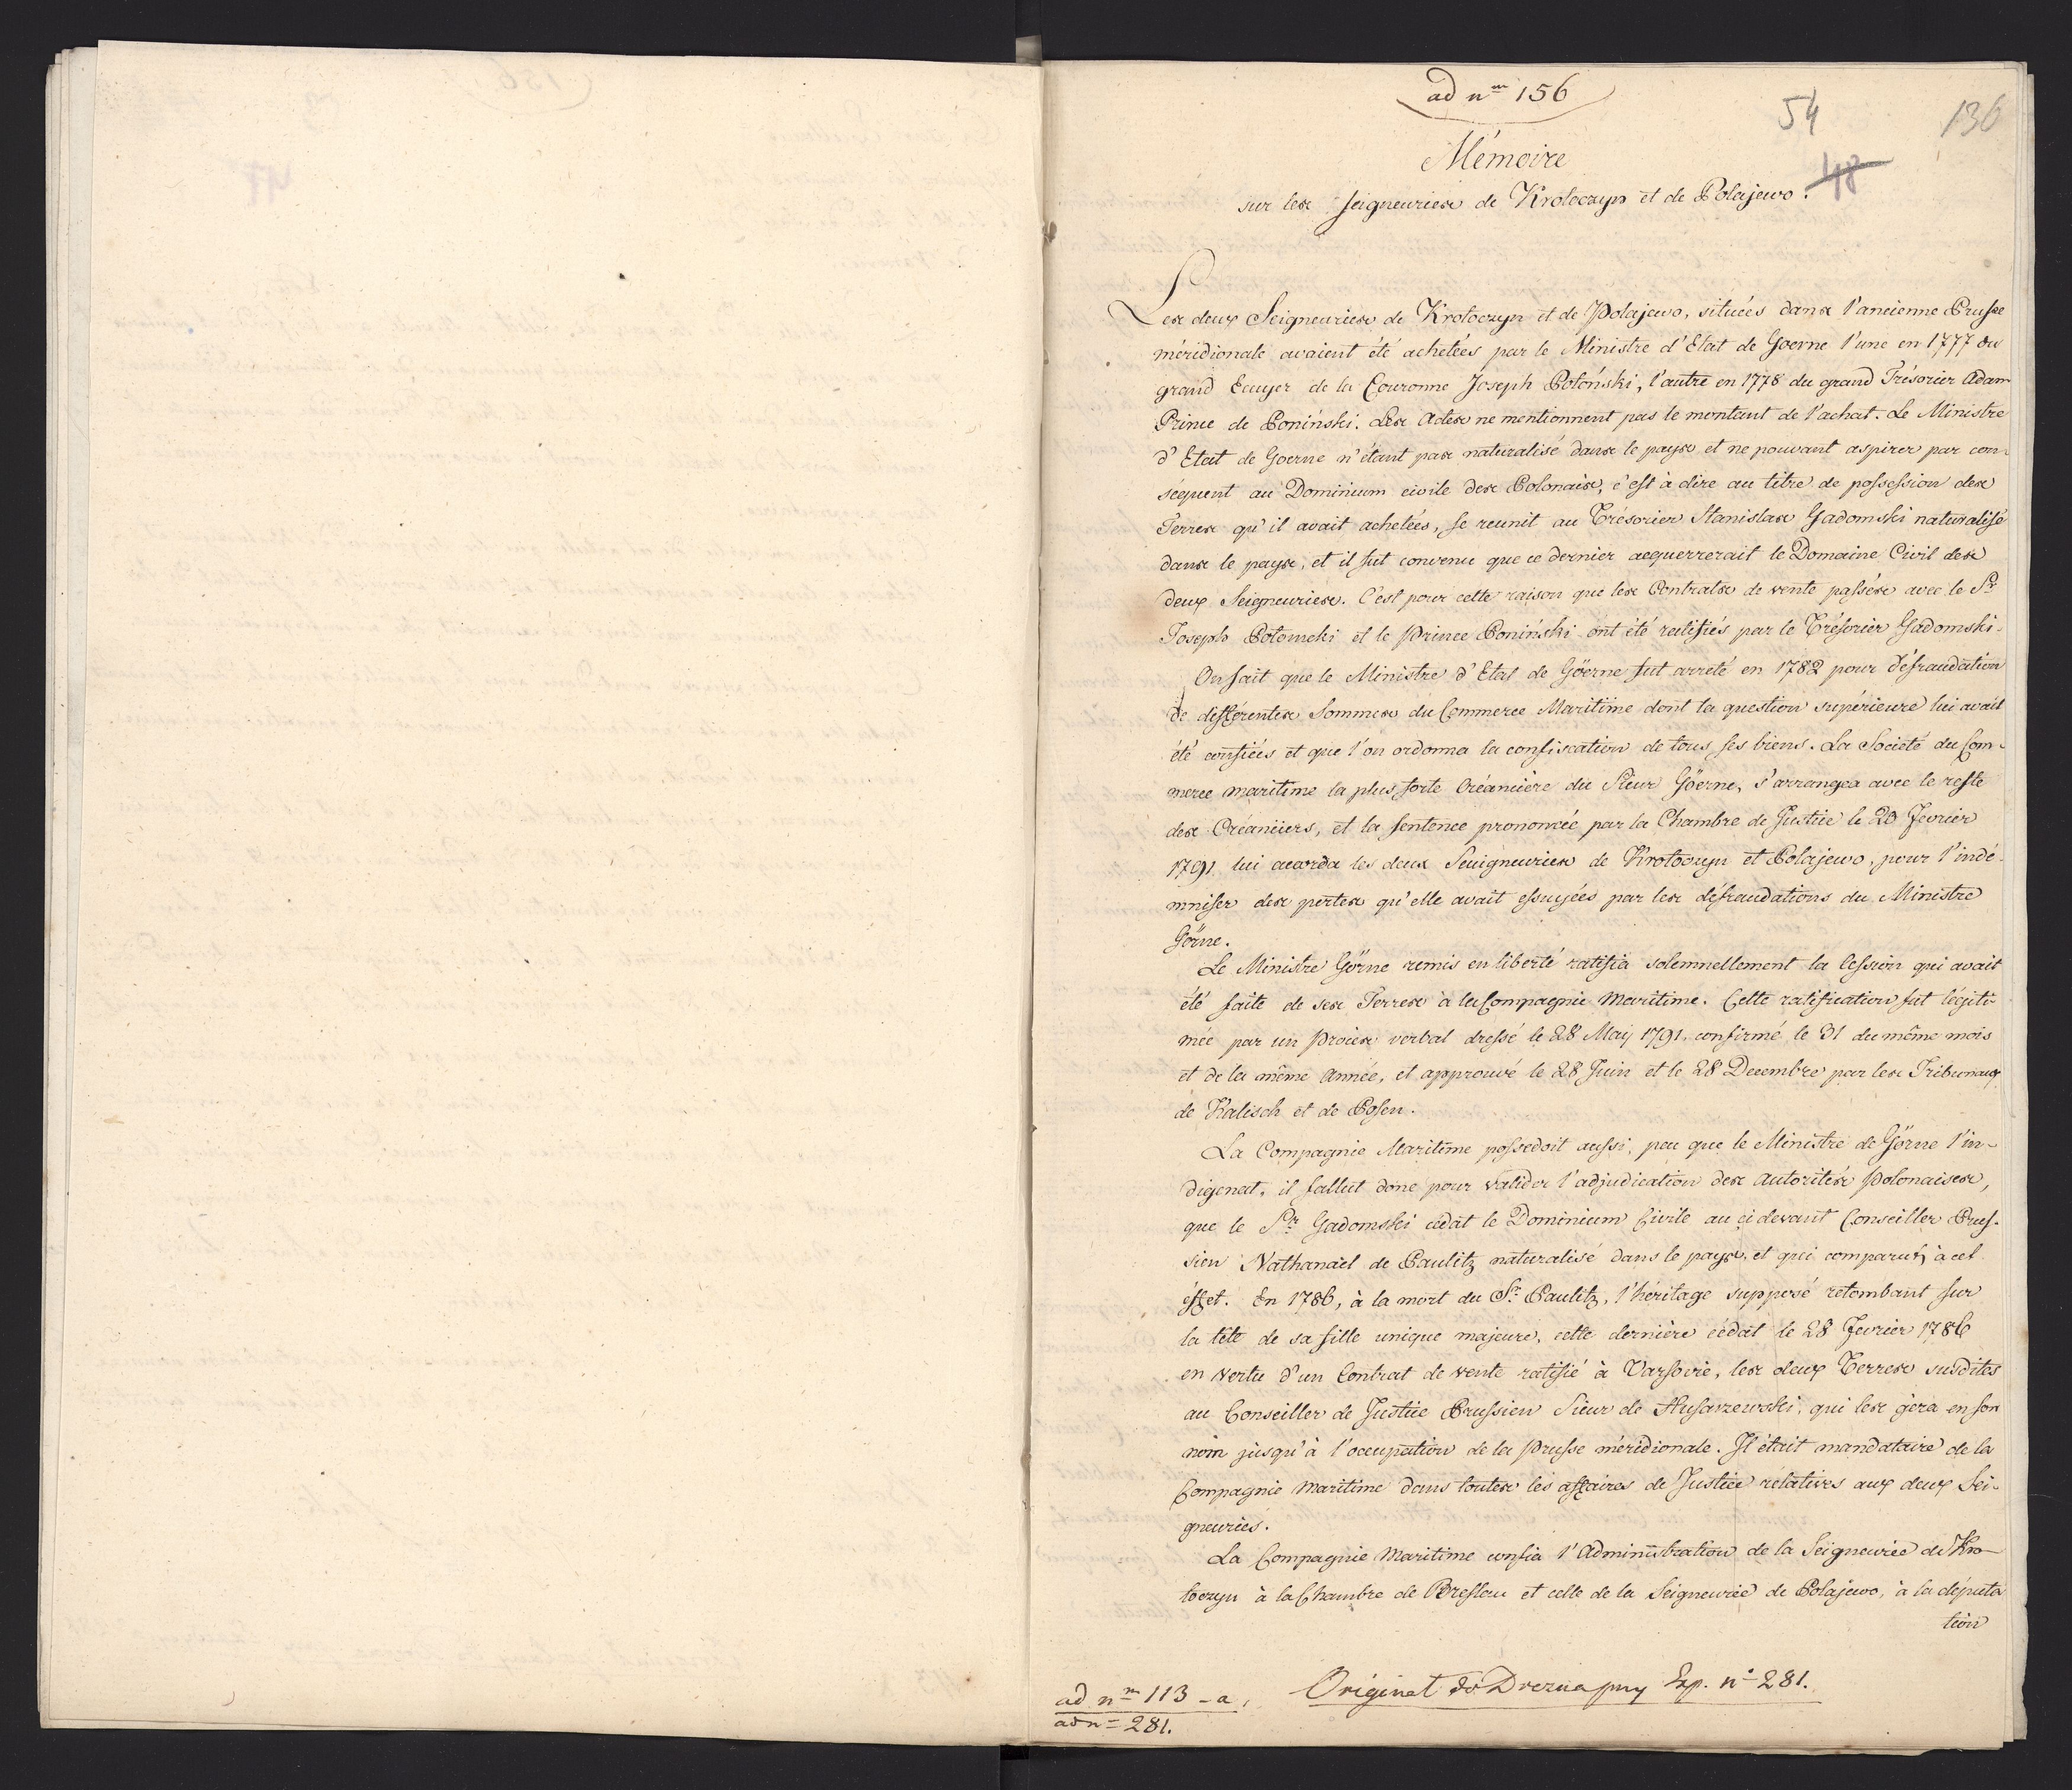 ad n<sup>m</sup> 156
54
136
Mémoire
48
sur les seigneuries de Krotoczyn et de Polajewo.
Les deux Seigneuries de Krotoczyn et de Polajewo, situées dans l'ancienne Prusse
méridionale avaient été achetées par le Ministre d'Etat de Goerne l'une en 1777 du
grand Ecuyer de la Couronne Joseph Potónski, l'autre en 1778 du grand Trésorier Adam
Prince de Poniński. Les Actes ne mentionnent pas le montant de l'achat. Le Ministre
d'Etat de Goerne n'étant pas naturalisé dans le pays et ne pouvant aspirer par con-
séquent au Dominium civile des Polonais, c'est à dire au titre de possession des
Terres qu'il avait achetées, se reunit au Trésorier Stanislas Gadomski naturalisé
dans le pays, et il fut convenu que ce dernier acquerrerait le Domaine Civil des
deux Seigneuries. C'est pour cette raison que les Contrats de vente passés avec le Sr
Joseph Potomcki et le Prince Poniński ont été ratifiés par le Trésorier Gadomski.
On sait que le Ministre d'Etat de Göerne fut arrêté en 1782 pour défraudation
de differentes Sommes du Commerce Maritime dont la question supérieure lui avait
été confiées et que l'on ordonna la confiscation de tous ses biens. La Societé du Com-
merce maritime la plus forte Créancière du Sieur Göerne, s'arrangea avec le reste
des Créanciers, et la sentence prononcée par la Chambre de Justice le 23 Fevrier
1791 lui accorda les deux Seuigneuries de Krotoczyn et Polajewo, pour l'indé-
mniser des pertes qu'elle avait essuyées par les défraudations du Ministre
Görne.
Le Ministre Görne remis en liberté ratifia solemnellement la Cession qui avait
été faite de ses Terres à la Compagnie Maritime. Cette ratification fut légiti-
mée par un Procès verbal dressé le 28 May 1791. confirmé le 31 du même mois
et de la même Année, et approuvé le 28 Juin et le 28 Decembre par les Tribunaux
de Kalisch et de Posen.
La Compagnie Maritime possedoit aussi, peu que le Ministre de Görne l'in-
digenat, il fallut donc pour valider l'adjudication des Autorités Polonaises,
que le Sr. Gadomski cédat le Dominium Civile au ci devant Conseiller Prus-
sien Nathanaël de Paulitz naturalisé dans le pays, et qui comparut à cet
éffet. En 1786, à la mort du Sr. Paulitz, l'héritage supposé retombant sur
la tête de sa fille unique majeure, cette dernière cédat le 28 Fevrier 1786
en vertu d'un Contrat de vente ratifié à Varsovie, les deux Terres susdites
au Conseiller de Justice Prussien Sieur de Husarzewski, qui les géra en son
nom jusqu'à l'occupation de la Prusse méridionale. Il était mandataire de la
Compagnie Maritime dans toutes les affaires de Justice rélatives aux deux Sei-
gneuries.
La Compagnie Maritime confia l'Administration de la Seigneurée de Kro-
toczyn à la Chambre de Breslau et celle de la Seigneurée de Polajewo, à la députa
tion
ad n<sup>m</sup> 113 - a,
Original do Drezna przy Exp. n° 281.
ad n= 281.